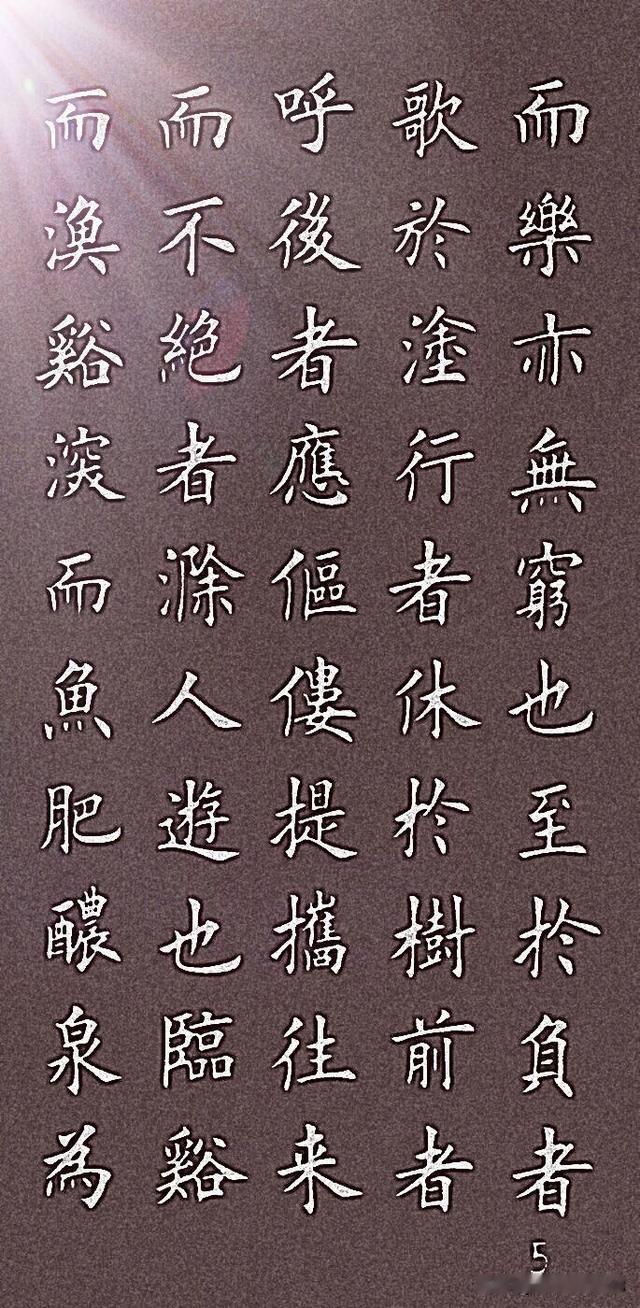 而樂亦無窮也至於負者
歌於塗行者休於樹前者
呼後者應傴僂提攜往来
而不絕者滁人遊也臨谿
而漁谿深而魚肥醲泉為
5